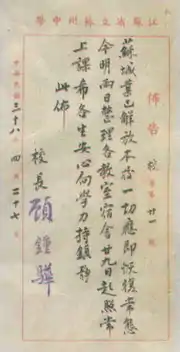 江蘇省立蘇州中學
佈告 校字第廿一號
蘇城業已解放本校一切應即恢復常態
今明兩日整理各教室宿舍廿九日起照常
上課希各生安心向學力持鎮靜
此佈
校長 顧鍾驊
中華民國三十八年四月二十七日